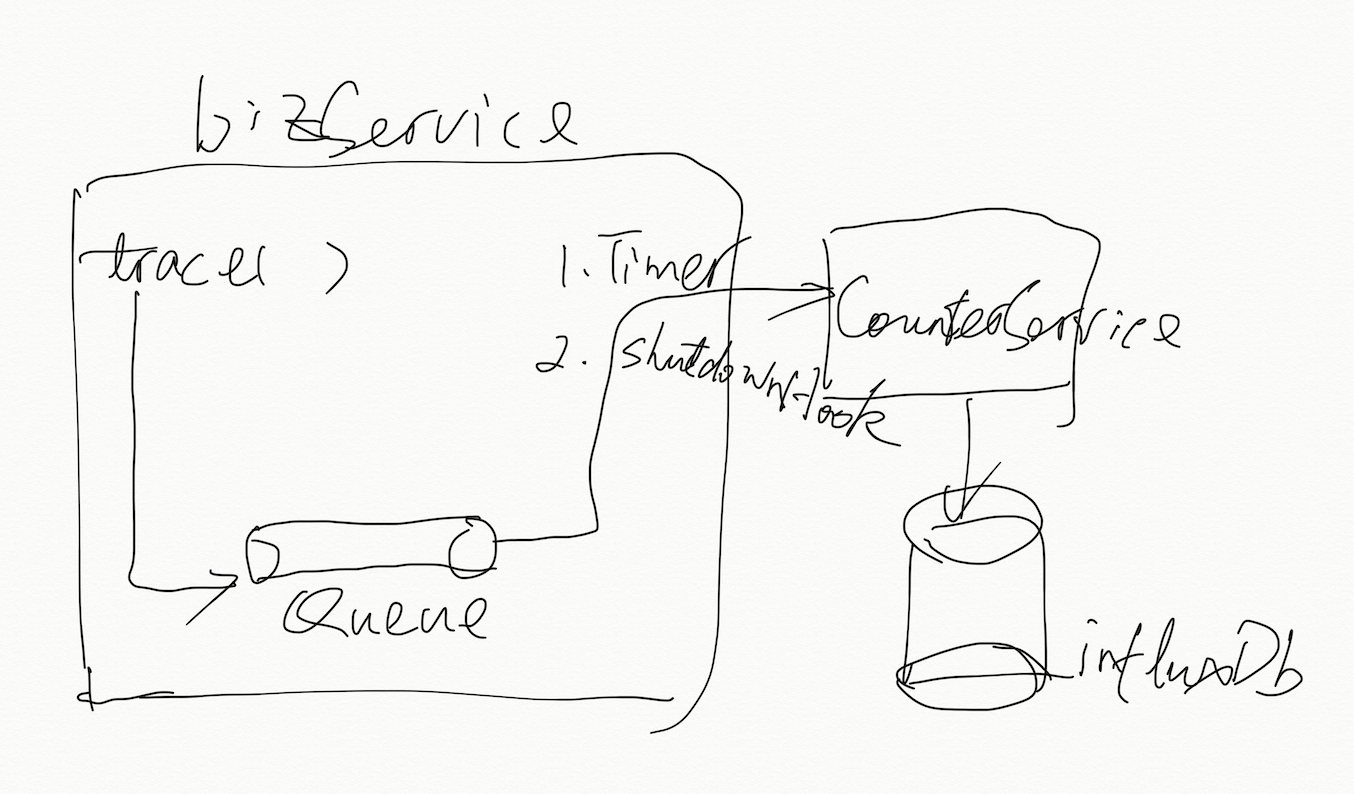 bizService
trace( )
1. Timer
2. ShutdownHook
CounterService
Queue
influxDb